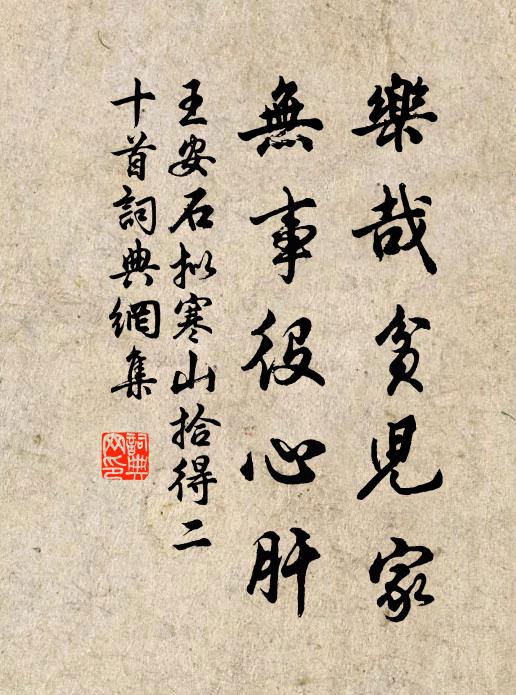 樂哉貧兒家
無事役心肝
王安石擬寒山拾得二
十首詞典網集
詞典
网印